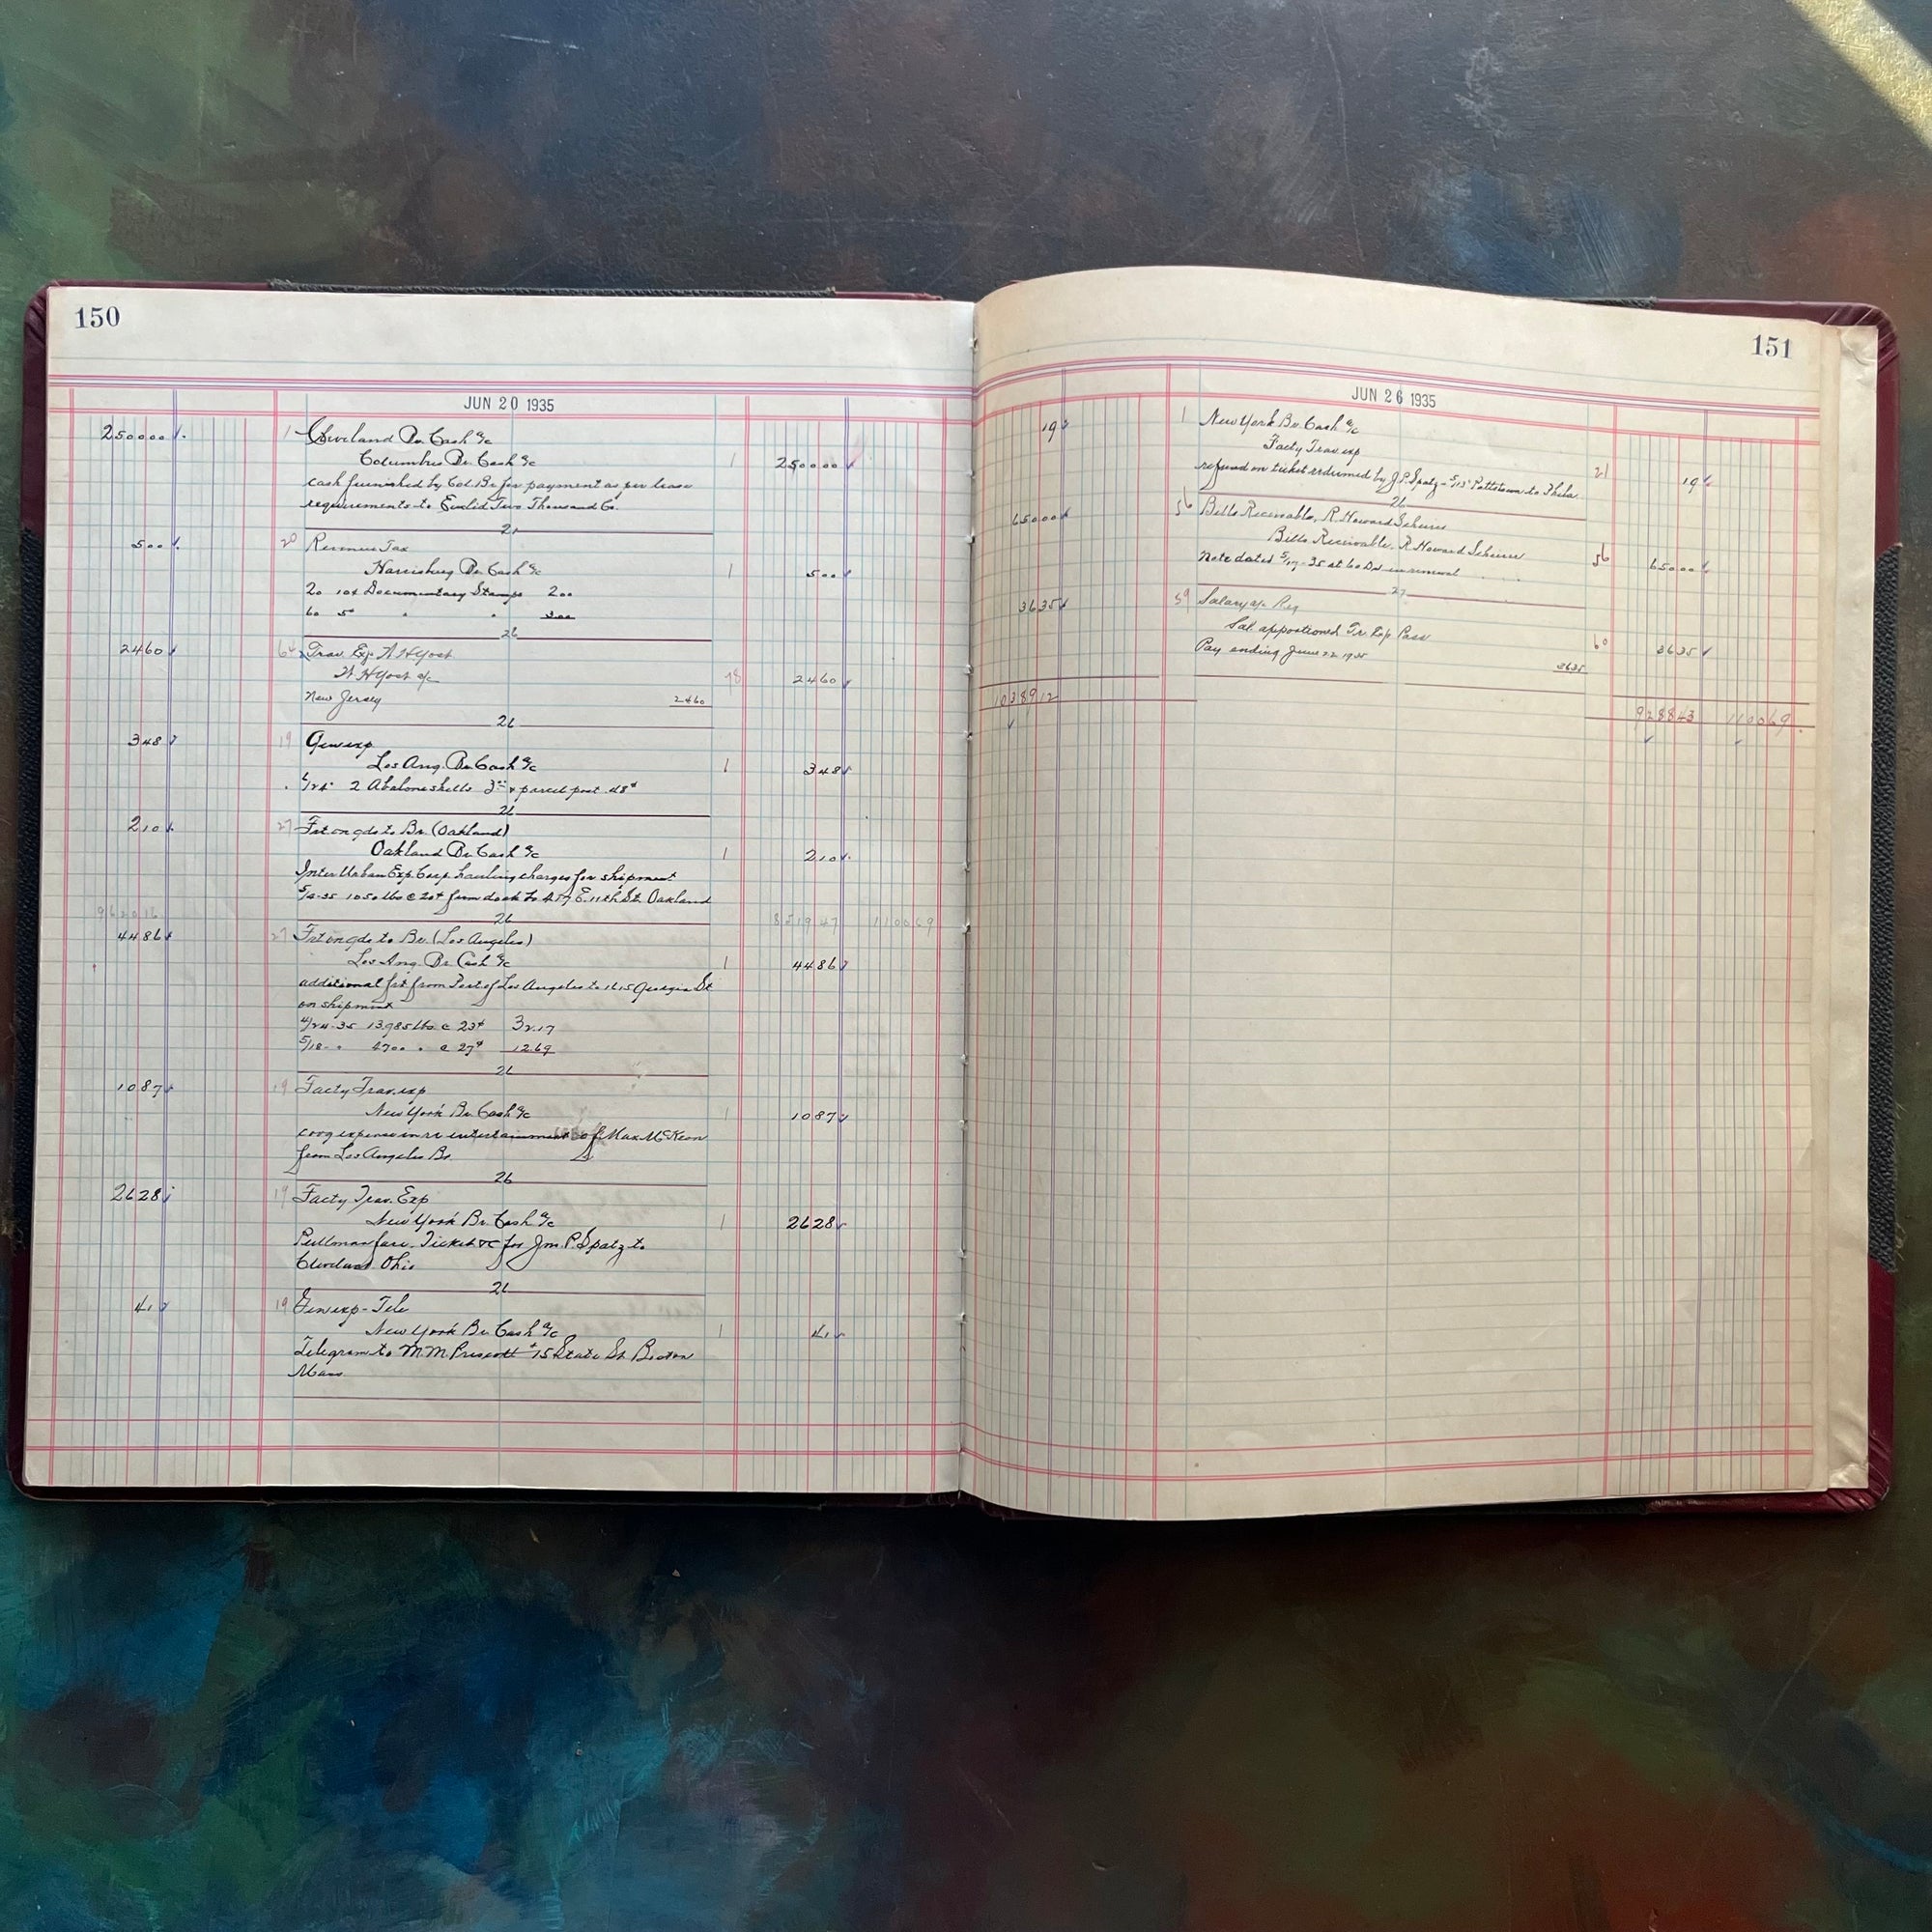 150
JUN 20 1935
250000 1 Cleveland Br. Cash a/c
Columbus Br. Cash a/c 1 250000
cash furnished by Col. Br for payment as per lease
requirements to Euclid Two Thousand Co.
500 20 Revenue Tax
Harrisburg Br. Cash a/c 1 500
20 10¢ Documentary Stamps 200
60 5¢ " " 300
26
2460 64 Trav. Exp. A H Yost
A H Yost a/c 78 2460
New Jersey 2460
26
348 19 Gen exp
Los Ang. Br. Cash a/c 1 348
6/24 2 Abalone shells 3.00 & parcel post 48¢
26
210 27 Frt on gds to Br. (Oakland)
Oakland Br. Cash a/c 1 210
Inter Urban Exp. Corp. hauling charges for shipment
1050 lbs @ 20¢ from dock to E. 11th St. Oakland
26 851947 110069
4486 27 Frt on gds to Br. (Los Angeles)
Los Ang. Br. Cash a/c 1 4486
additional frt from Port of Los Angeles to 1615 Georgia St
on shipment
4/24-35 13985 lbs @ 23¢ 32.17
5/18- " 4700 " @ 27¢ 12.69
26
1087 19 Facty Trav. exp
New York Br. Cash a/c 1 1087
expense in re entertainment of Max McKeon
from Los Angeles Br.
26
2628 19 Facty Trav. Exp
New York Br. Cash a/c 1 2628
Pullman fare, Ticket &c for Jm. P. Spatz to
Cleveland Ohio
26
41 19 Gen exp - Tele
New York Br. Cash a/c 1 41
Telegram to M. M. Prescott #15 State St Boston
Mass
151
JUN 26 1935
19 1 New York Br. Cash a/c
Facty Trav. exp 21 19
refund on ticket redeemed by J. P. Spatz - 5/13 Pottstown to Phila
26
65000 56 Bills Receivable, R. Howard
Bills Receivable, R. Howard 56 65000
Note dated 5/17-35 at 60 Ds in renewal
27
3635 59 Salary a/c Reg
Sal. apportioned Tr. Exp. Pass 60 3635
Pay ending June 22 1935 3635
1038912
928843 110069